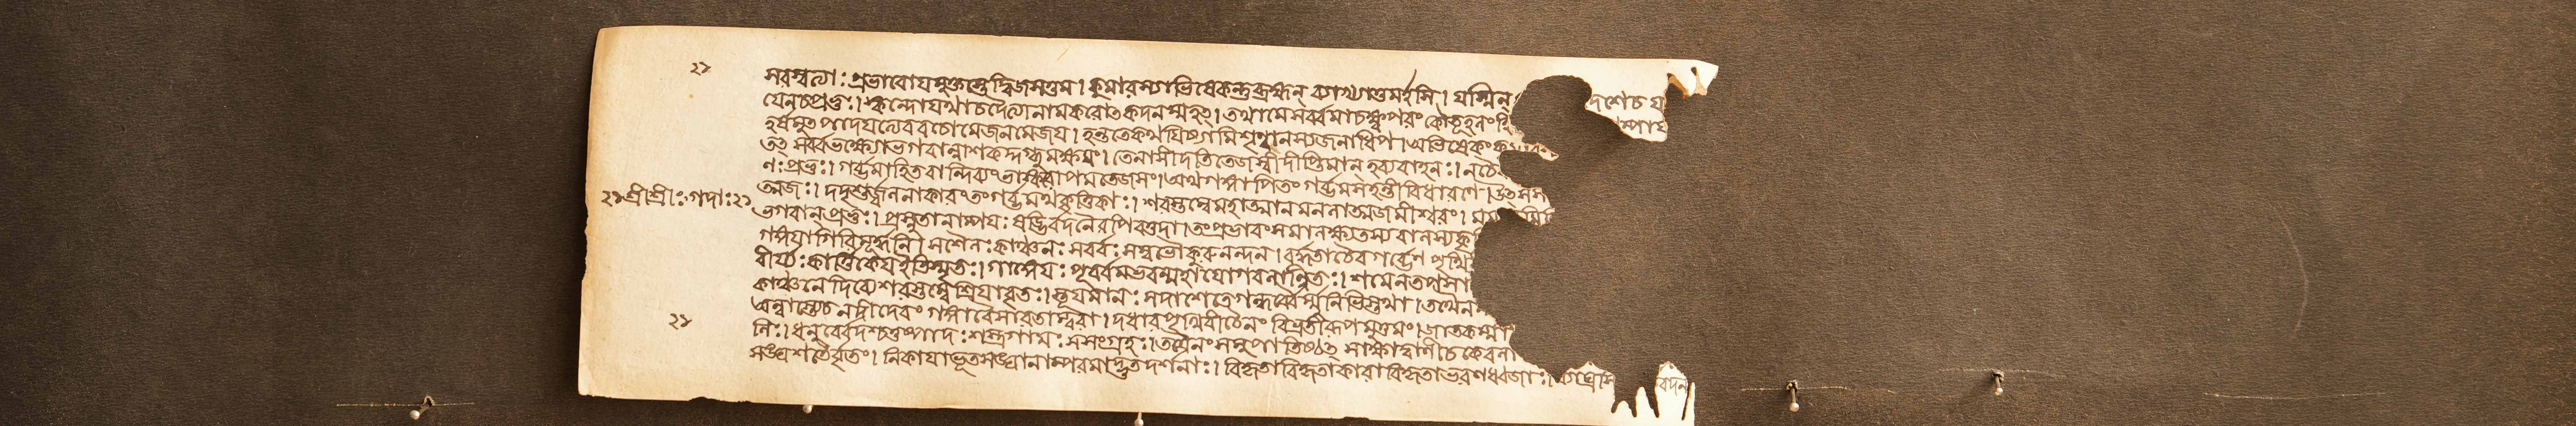 ২১
সরস্বত্যাঃ প্রভাবোযমুক্তস্তে দ্বিজসত্তম। কুমারস্যাভিষেকন্তু ব্রহ্মন্ ব্যাখ্যাতুমর্হসি। যস্মিন্ দেশে চ য
যেন চ প্রভুঃ। স্কন্দো যথা চ দৈত্যানামকরোত কদনম্মহৎ। তথা মে সর্ব্বমাচক্ষ্ব পরং কৌতূহলং হি
হর্ষমুত্পাদযত্যেব বচো মে জনমেজয। হন্ত তে কথযিষ্যামি শৃণ্বানস্য জনাধিপ। অভিষেকং
তত্ সর্ব্বভক্ষ্যো ভগবান্নাশকদ্দগ্ধুমক্ষযং। তেনাসীদতি তেজস্বী দীপ্তিমান্ হব্যবাহনঃ। ন চৈ
ণঃ প্রভুঃ। গর্ব্ভমাহিতবান্দিব্যং ভাস্করোপমতেজসং। অথ গঙ্গাপি তং গর্ব্ভমসহন্তী বিধারণে। উত্সস
২১ শ্রীশ্রীঃ গদাঃ ২১
ত্মজঃ। দদৃশুর্জ্বলনাকারং তং গর্ব্ভমথ কৃত্তিকাঃ। শরস্তম্বে মহাত্মানমনলাত্মজমীশ্বরং। মমা
ভগবান্ প্রভুঃ। প্রস্নুতানাম্পযঃ ষড্ভির্বদনৈরপিবত্তদা। তং প্রভাবং সমালক্ষ্য তস্য বালস্য কৃ
গঙ্গযা গিরিমূর্দ্ধনি। স শৈলঃ কাঞ্চনঃ সর্ব্বঃ সম্বভৌ কুরুনন্দন। বর্দ্ধতা চৈব গর্ব্ভেণ পৃথি
বীর্য্যঃ কার্ত্তিকেয ইতি স্মৃতঃ। গাঙ্গেযঃ পূর্ব্বমভবন্মহাযোগবলান্বিতঃ। শমেন তপসা
কাঞ্চনে দিব্যে শরস্তম্বে শ্রিযাবৃতঃ। স্তূযমানঃ সদা শেতে গন্ধর্ব্বৈর্ম্মুনিভিস্তথা। তথৈন
অন্বাস্তে চ নদী দেবং গঙ্গা বৈ সরিতাম্বরা। দধার পৃথিবী চৈনং বিভ্রতী রূপমুত্তমং। জাতকর্ম্মা
২১
নিঃ। ধনুর্বেদশ্চতুষ্পাদঃ শস্ত্রগ্রামঃ সসংগ্রহঃ। তত্রৈনং সমুপাতিষ্ঠত্ সাক্ষাদ্বাণী চ কেবলা
সঙ্ঘশতৈর্বৃতং। নিকাযা ভূতসঙ্ঘানাম্পরমাদ্ভুতদর্শনাঃ। বিকৃতা বিকৃতাকারা বিকৃতাভরণধ্বজাঃ। ব্যাঘ্রসি বদন